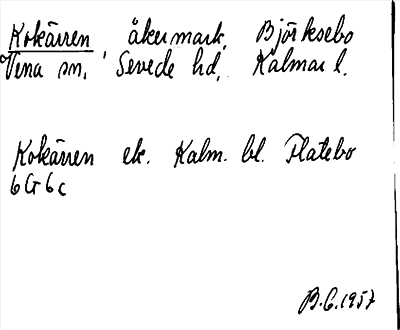 Kokärren, åkermark, Björksebo
Vena sn, Sevede hd, Kalmar l.
Kokärren ek. Kalm. bl. Flatebo
6G6c
B.G. 1957